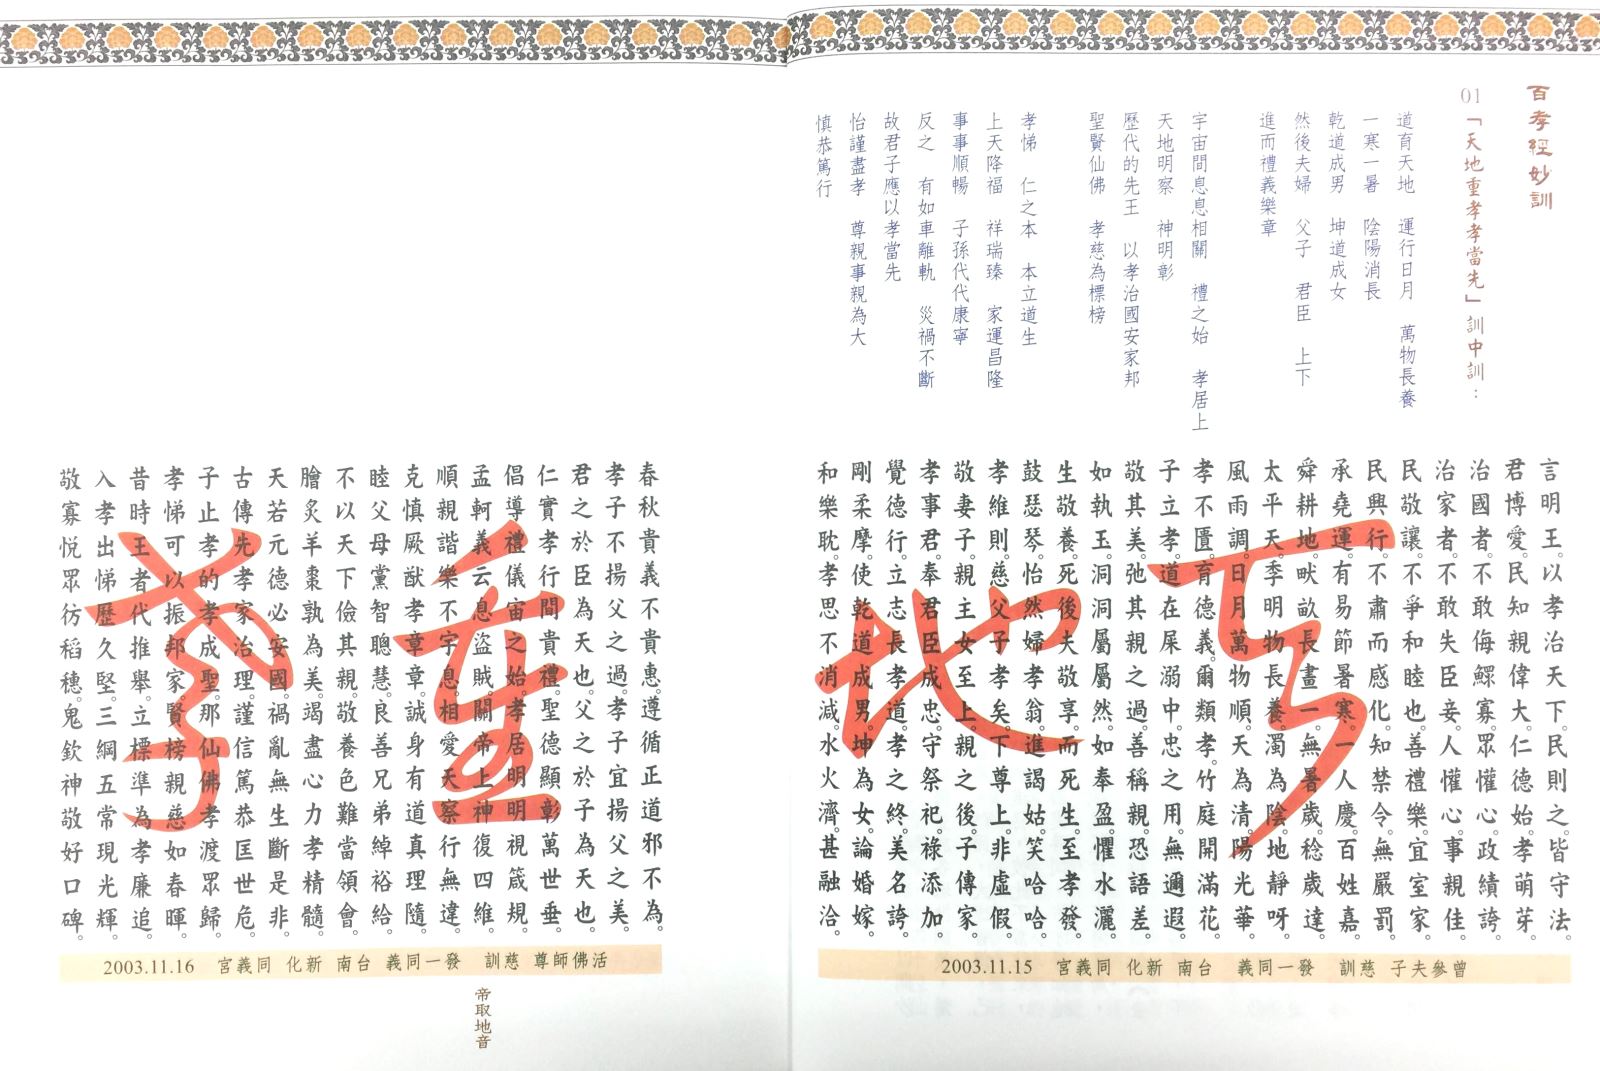 百孝經妙訓
01「天地重孝孝當先」訓中訓：
道育天地　運行日月　萬物長養
一寒一暑　陰陽消長
乾道成男　坤道成女
然後夫婦　父子　君臣　上下
進而禮義樂章
宇宙間息息相關　禮之始　孝居上
天地明察　神明彰
歷代的先王　以孝治國安家邦
聖賢仙佛　孝慈為標榜
孝悌　仁之本　本立道生
上天降福　祥瑞臻　家運昌隆
事事順暢　子孫代代康寧
反之　有如車離軌　災禍不斷
故君子應以孝當先
怡謹盡孝　尊親事親為大
慎恭篤行
天地
言明王。以孝治天下。民則之。皆守法。
君博愛。民知親偉大。仁德始。孝萌芽。
治國者。不敢侮鰥寡。眾懽心。政績誇。
治家者。不敢失臣妾。人懽心。事親佳。
民敬讓。不爭和睦也。善禮樂。宜室家。
民興行。不肅而感化。知禁令。無嚴罰。
承堯運。有易節暑寒。一人慶。百姓嘉。
舜耕地。畎畝長畫一。無暑歲。稔歲達。
太平天。季明物長養。濁為陰。地靜呀。
風雨調。日月萬物順。天為清。陽光華。
孝不匱。育德義。爾類孝。竹庭開滿花。
子立孝。道在屎溺中。忠之用。無邇遐。
敬其美。弛其親之過。善稱親。恐語差。
如執玉。洞洞屬屬然。如奉盈。懼水灑。
生敬養。死後夫敬享。而死生。至孝發。
鼓瑟琴。怡然婦孝翁。進謁姑。笑哈哈。
孝維則。慈父子孝矣。下尊上。非虛假。
敬妻子。親主女至上。親之後。子傳家。
孝事君。奉君臣成忠。守祭祀。祿添加。
覺德行。立志長孝道。孝之終。美名誇。
剛柔摩。使乾道成男。坤為女。論婚嫁。
和樂耽。孝思不消減。水火濟。甚融洽。
2003.11.15 宮義同 化新 南台 義同一發 訓慈 子夫參曾
重孝
春秋貴義不貴惠。遵循正道邪不為。
孝子不揚父之過。孝子宜揚父之美。
君之於臣為天也。父之於子為天也。
仁實孝行間貴禮。聖德顯彰萬世垂。
倡導禮儀宙之始。孝居明明視箴規。
孟軻義云息盜賊。關帝上神復四維。
順親諧樂不宇息。相愛天察行無違。
克慎厥猷孝章章。誠身有道真理隨。
睦父母黨智聰慧。良善兄弟綽裕給。
不以天下儉其親。敬養色難當領會。
膾炙羊棗孰為美。竭盡心力孝精髓。
天若元德必安國。禍亂無生斷是非。
古傳先孝家治理。謹信篤恭匡世危。
子止孝的孝成聖。那仙佛孝渡眾歸。
孝悌可以振邦家。賢榜親慈如春暉。
昔時王者代推舉。立標準為孝廉追。
入孝出悌歷久堅。三綱五常現光輝。
敬寡悅眾彷稻穗。鬼欽神敬好口碑。
2003.11.16 宮義同 化新 南台 義同一發 訓慈 尊師佛活
帝取地音